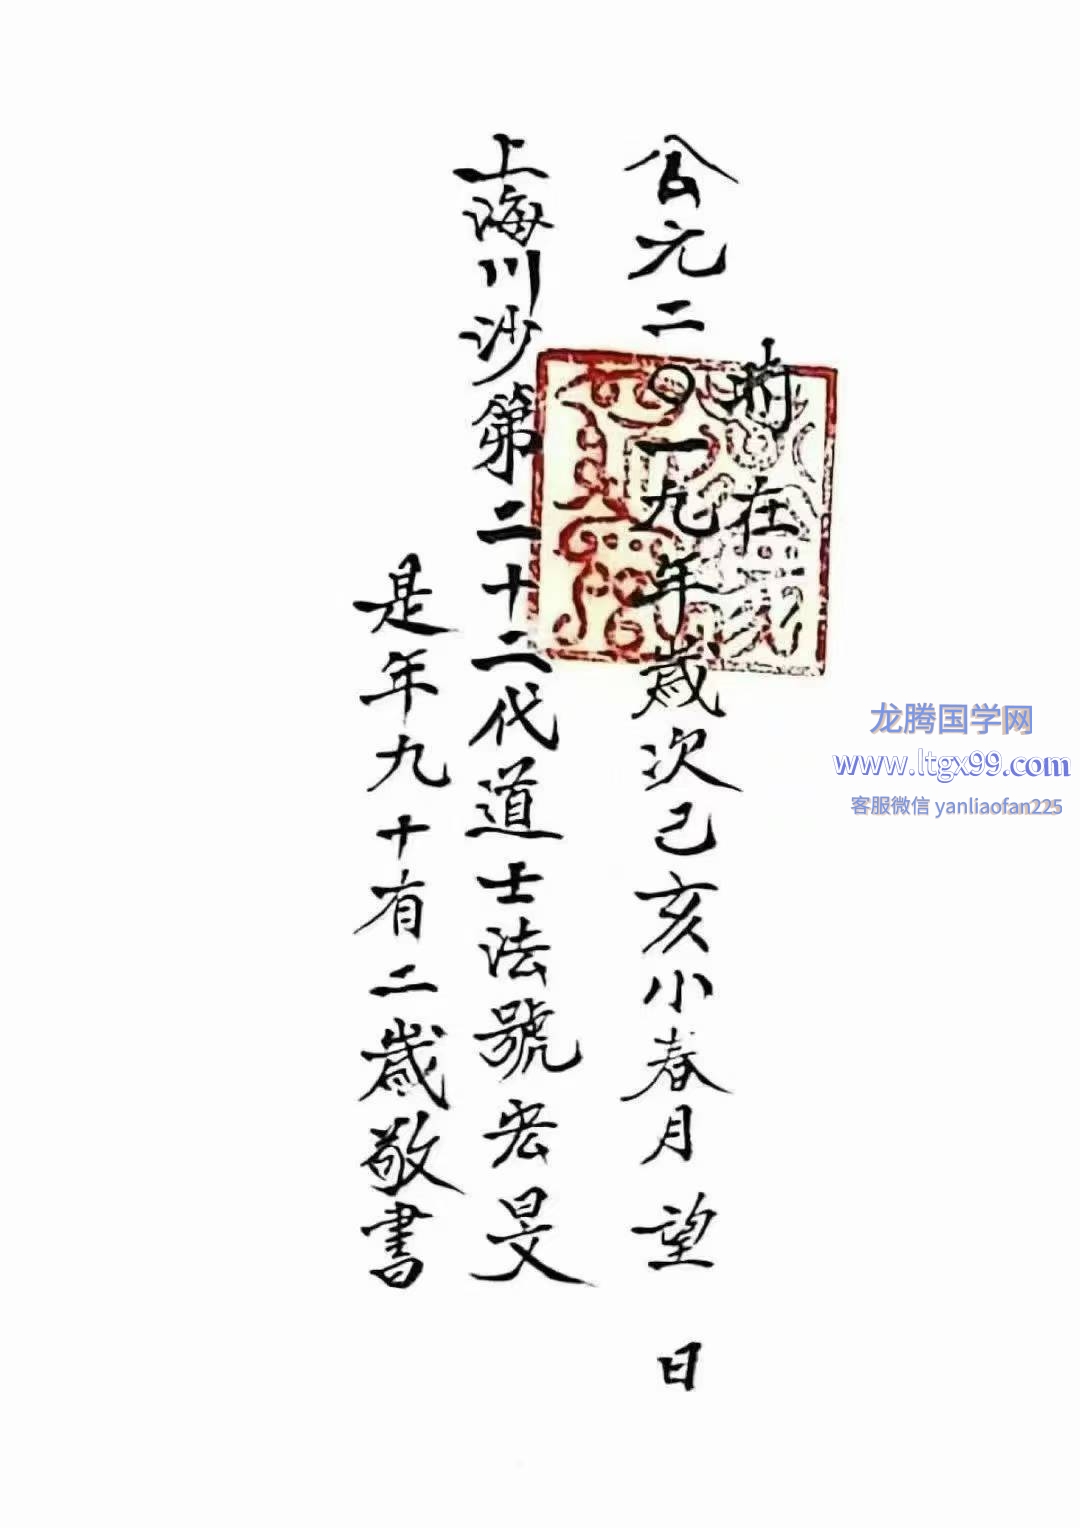 时在
公元二〇一九年歲次己亥小春月望日
上海川沙第二十二代道士法號宏旻
是年九十有二歲敬書
龙腾国学网
www.ltgx99.com
客服微信 yanliaofan225